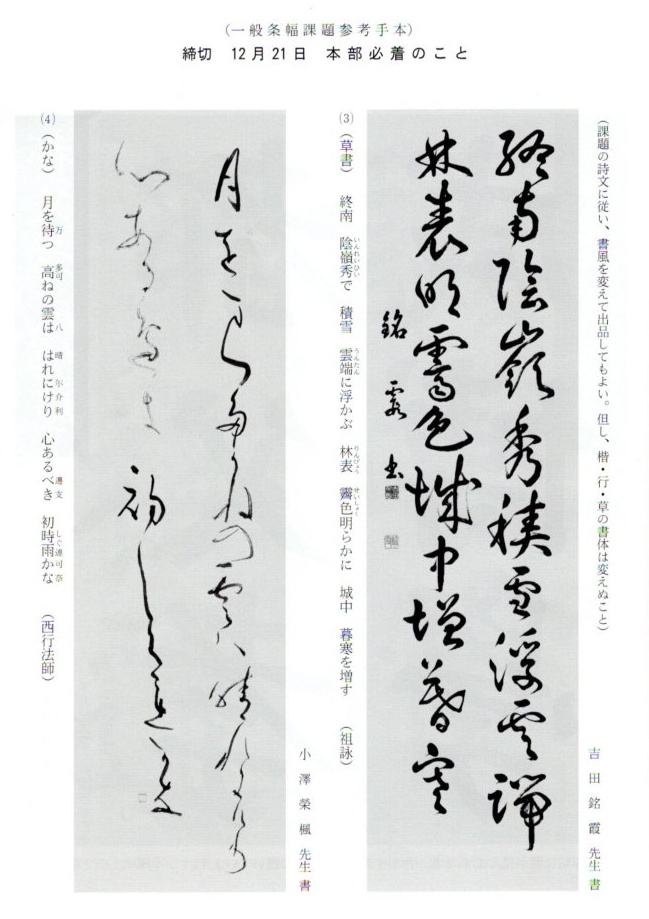 (一般条幅課題参考手本)
締切 12月21日 本部必着のこと
(課題の詩文に従い、書風を変えて出品してもよい。但し、楷・行・草の書体は変えぬこと)
吉田銘霞先生書
終南陰嶺秀積雪浮雲端
林表明霽色城中増暮寒
銘霞書
(3) (草書) 終南 陰嶺秀で 積雪 雲端に浮かぶ 林表 霽色明らかに 城中 暮寒を増す (祖詠)
いんれいひい うんたん りんぴょう せいしょく
小澤榮楓先生書
月をまつ多可ねの雲八晴れ尓介利
心ある遍支初しぐ連可奈
(4) (かな) 月を待つ 高ねの雲は はれにけり 心あるべき 初時雨かな (西行法師)
万 多可 八 晴 尓介利 遍支 しぐ連可奈